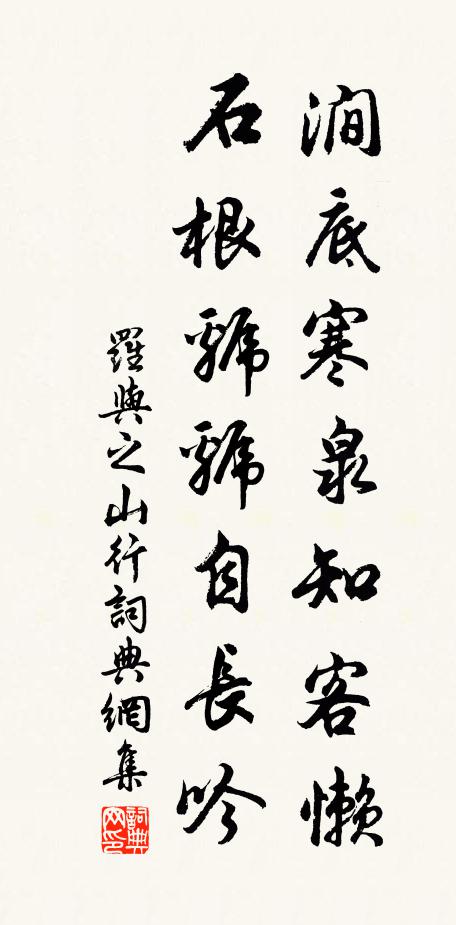 澗底寒泉知客懶
石根虢虢自長吟
羅與之山行詞典網集
詞典
网印